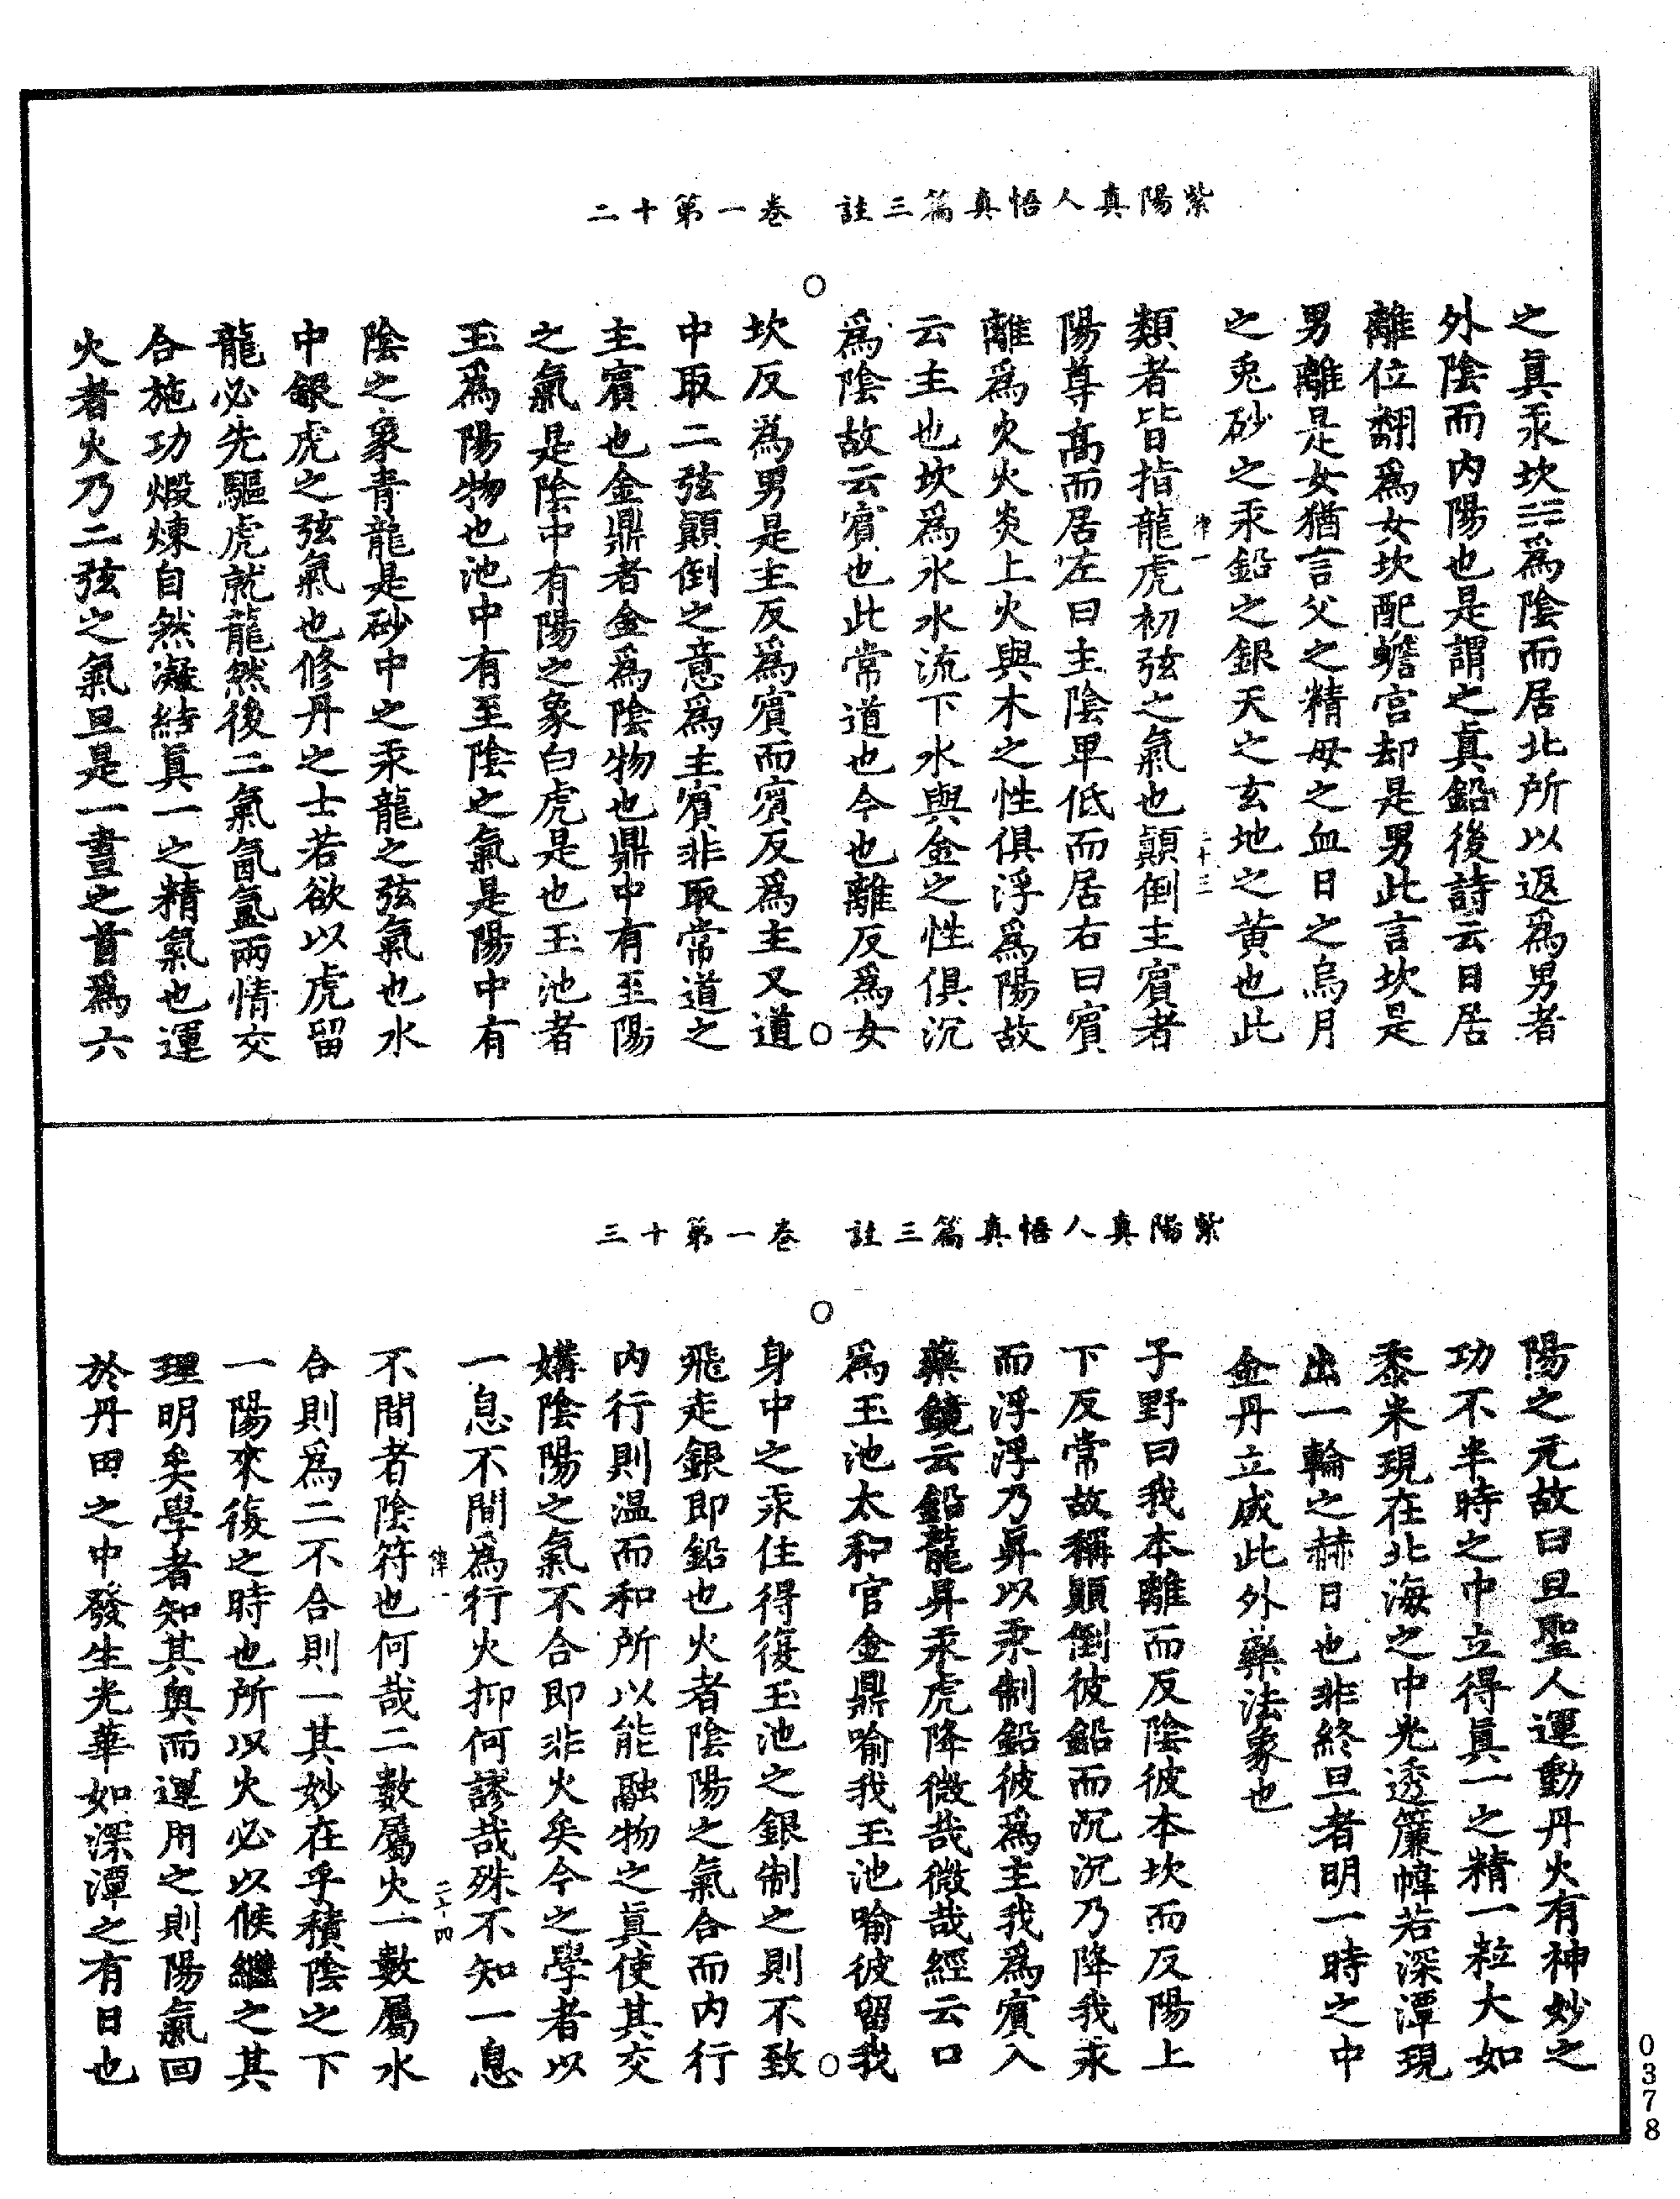 紫陽真人悟真篇三註　卷一第十二
之真汞坎☵為陰而居北所以返為男者
外陰而内陽也是謂之真鉛後詩云日居
離位翻為女坎配蟾宮却是男此言坎是
男離是女猶言父之精母之血日之烏月
之兎砂之汞鉛之銀天之玄地之黄也此
律一　二十三
類者皆指龍虎初弦之氣也顛倒主賓者
陽尊高而居左曰主陰卑低而居右曰賓
離為火火炎上火與木之性俱浮為陽故
云主也坎為水水流下水與金之性俱沉
為陰故云賓也此常道也今也離反為女
坎反為男是主反為賓而賓反為主又道
中取二弦顛倒之意為主賓非取常道之
主賓也金鼎者金為陰物也鼎中有至陽
之氣是陰中有陽之象白虎是也玉池者
玉為陽物也池中有至陰之氣是陽中有
陰之象青龍是砂中之汞龍之弦氣也水
中銀虎之弦氣也修丹之士若欲以虎留
龍必先驅虎就龍然後二氣氤氳兩情交
合施功煅煉自然凝結真一之精氣也運
火者火乃二弦之氣旦是一晝之首為六
紫陽真人悟真篇三註　卷一第十三
陽之元故曰旦聖人運動丹火有神妙之
功不半時之中立得真一之精一粒大如
黍米現在北海之中光透簾幃若深潭現
出一輪之赫日也非終旦者明一時之中
金丹立成此外藥法象也
子野曰我本離而反陰彼本坎而反陽上
下反常故稱顛倒彼鉛而沉沉乃降我汞
而浮浮乃昇以汞制鉛彼為主我為賓入
藥鏡云鉛龍昇汞虎降微哉微哉經云口
為玉池太和官金鼎喻我玉池喻彼留我
身中之汞住得復玉池之銀制之則不致
飛走銀即鉛也火者陰陽之氣合而内行
内行則温而和所以能融物之真使其交
媾陰陽之氣不合即非火矣今之學者以
一息不間為行火抑何謬哉殊不知一息
律一　二十四
不間者陰符也何哉二數屬火一數屬水
合則為二不合則一其妙在乎積陰之下
一陽來復之時也所以火必以候繼之其
理明矣學者知其奥而運用之則陽氣回
於丹田之中發生光華如深潭之有日也
0378